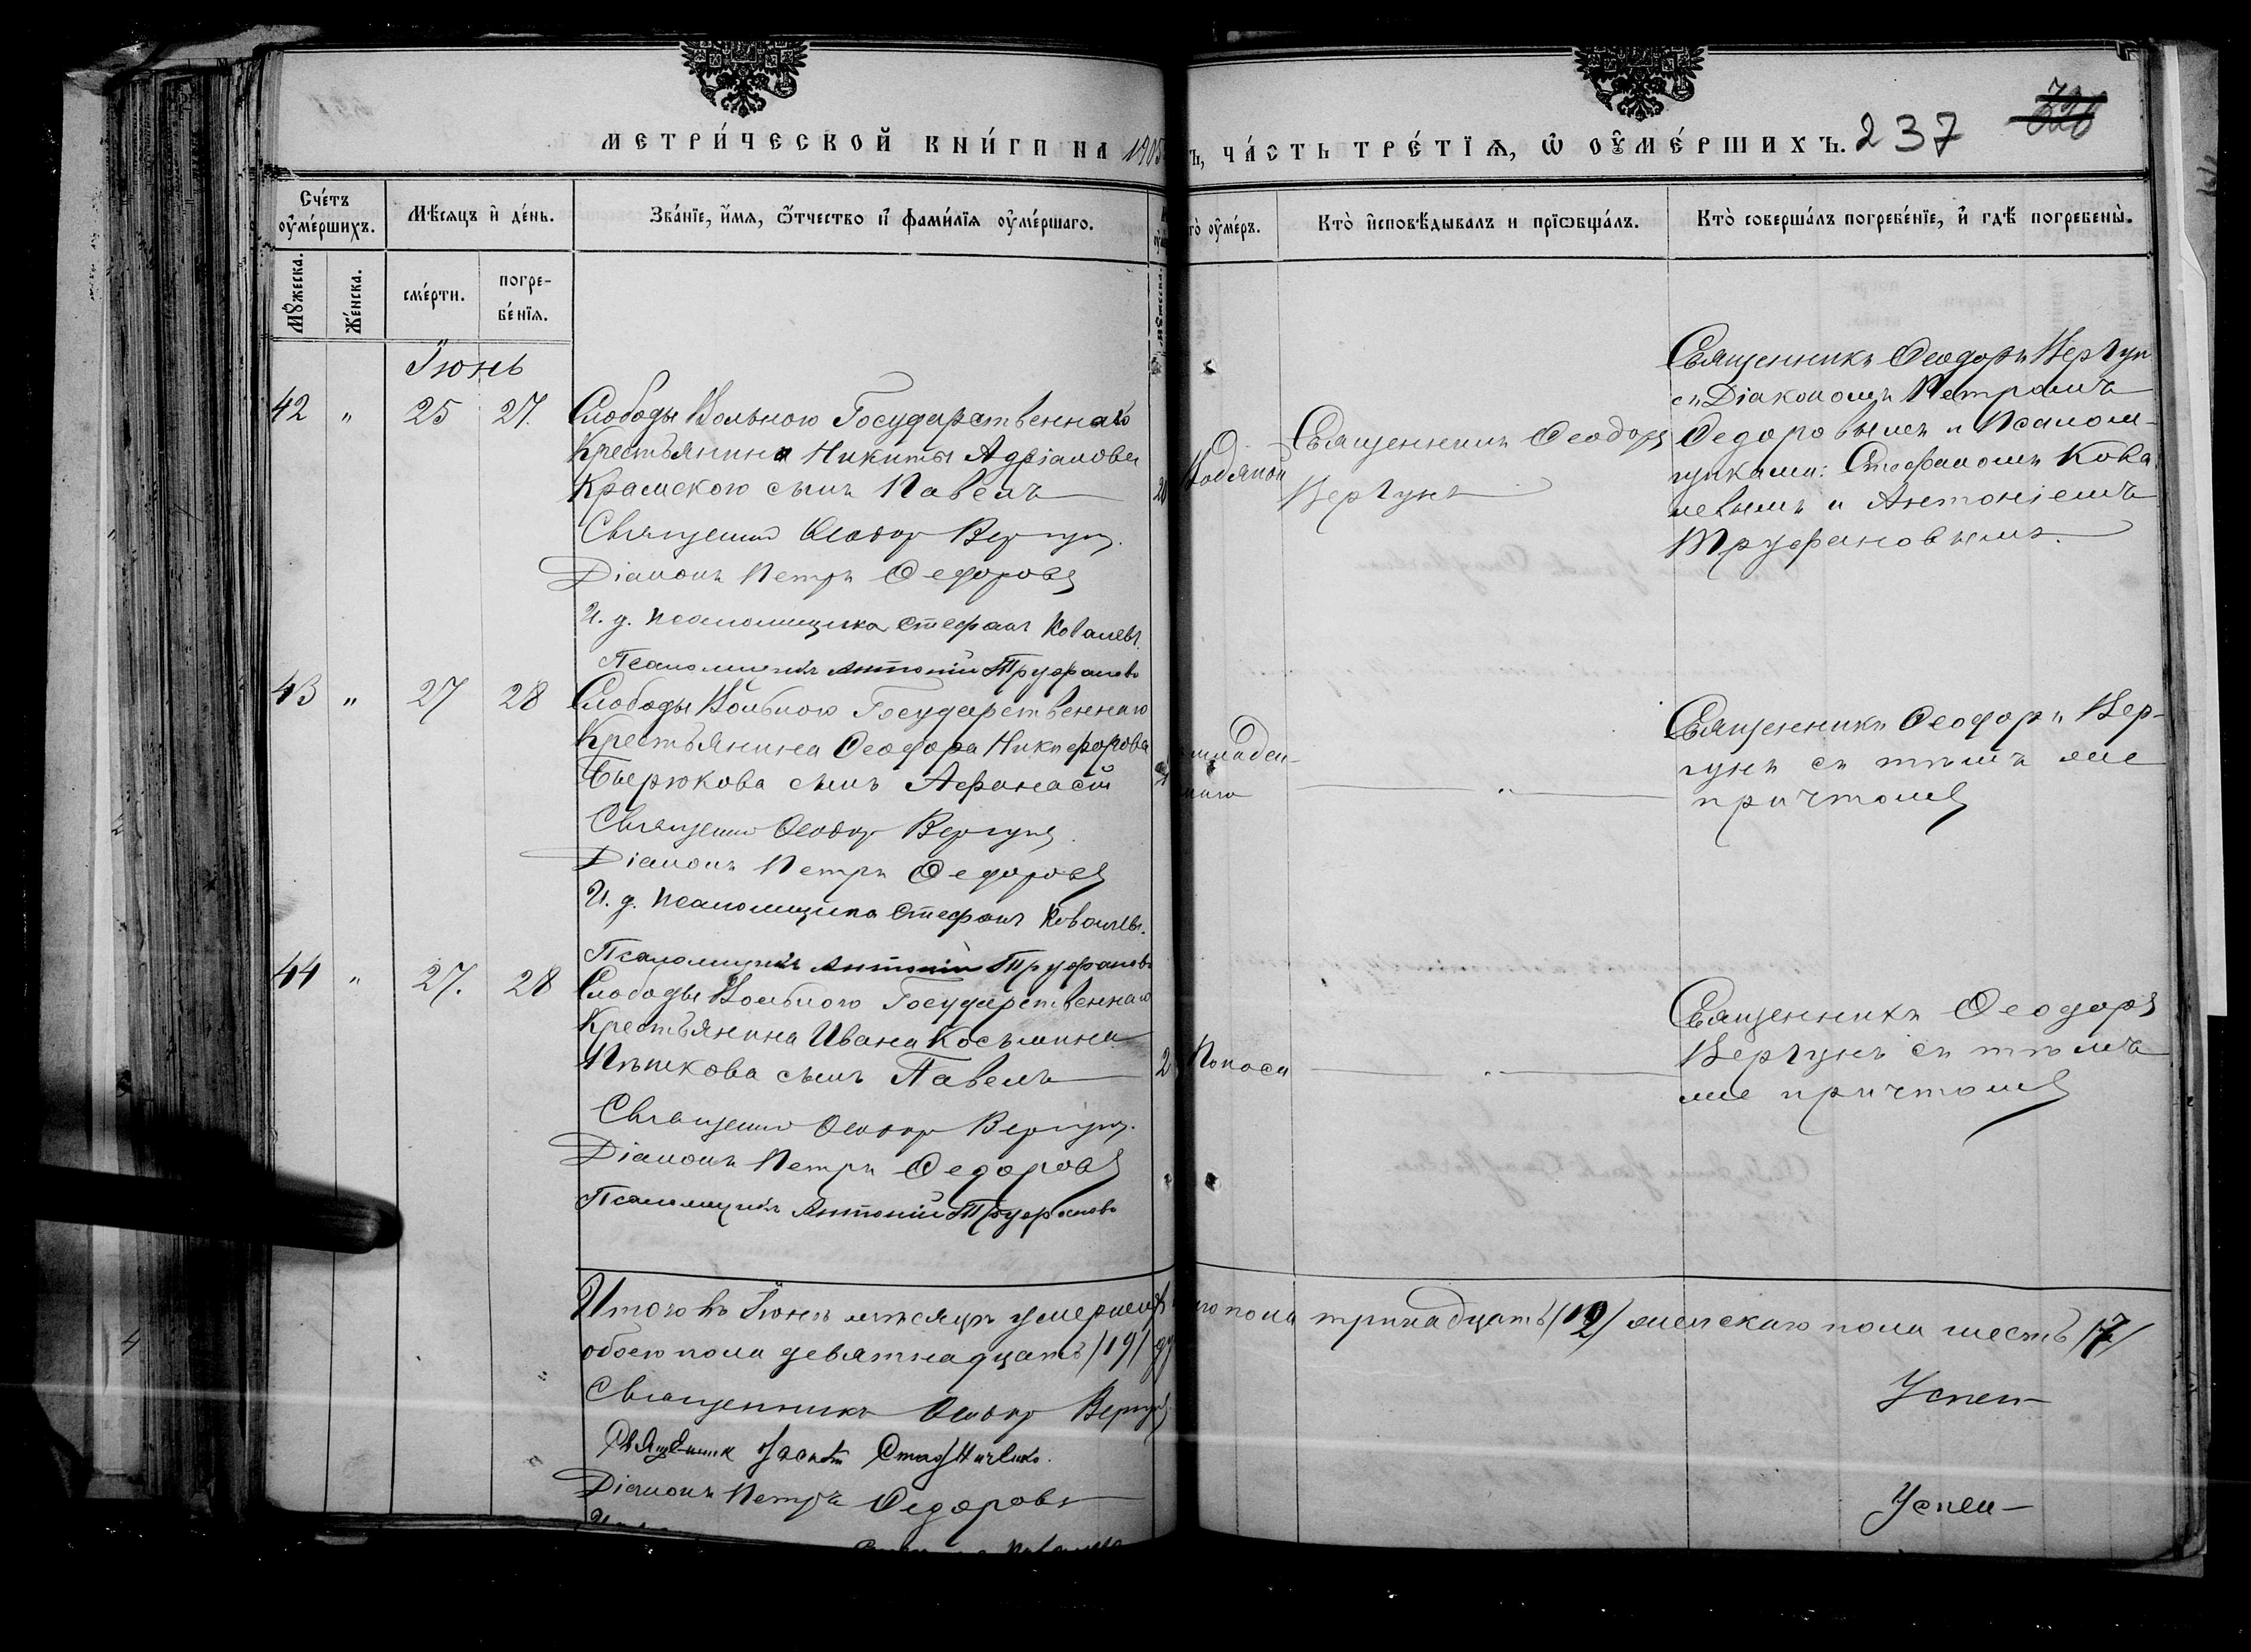 МЕТРИ́ЧЕСКОЙ КНИ́ГИ НА 1905
ЧА́СТЬ ТРЕ́ТЇѦ, Ѡ҆ ОУ҆МЕ́РШИХЪ. 237
Сче́тъ оу҆ме́ршихъ.
Мѣ́сяцъ и҆ де́нь.
Зва́нїе, и҆́мя, ѻ҆́тчество и҆ фами́лїя оу҆ме́ршаго.
го̀ оу҆ме́ръ.
Кто̀ и҆сповѣ́дывалъ и прїѡбща́лъ.
Кто̀ соверша́лъ погребе́нїе, и҆ гдѣ̀ погребены̀.
Мꙋ́жеска.
Же́нска.
сме́рти.
погре-
бе́нїя.
Іюнь
42 " 25 27.
Слободы Вольного Государственнаго
Крестьянина Никиты Адріанова
Крамского сынъ Павелъ
Священникъ Ѳеодор Вергунъ.
Діаконъ Петръ Ѳедоровъ
И. д. псаломщика Стефанъ Ковалевъ.
Псаломщикъ Антоній Труфановъ
20
Водяной
Священникъ Ѳеодоръ
Вергунъ
Священникъ Ѳеодоръ Вергун
съ Діакономъ Петромъ
Ѳедоровымъ и Псалом-
щиками: Стефаномъ Кова
левымъ и Антоніемъ
Труфановымъ.
43 " 27 28
Слободы Вольного Государственнаго
Крестьянина Ѳеодора Никифорова
Бьерюкова сынъ Афанасій
Священникъ Ѳеодор Вергунъ
Діаконъ Петръ Ѳедоровъ
И. д. псаломщика Стефанъ Ковалевъ.
Псаломщикъ Антоній Труфановъ
младен-
"
Священникъ Ѳеодоръ Вер-
гунъ съ тѣмъ же
причтомъ
44 " 27. 28
Слободы Вольного Государственнаго
Крестьянина Ивана Косьмина
Пѣшкова сынъ Павелъ
Священникъ Ѳеодор Вергунъ.
Діаконъ Петръ Ѳедоровъ
Псаломщикъ Антоній Труфановъ
2
Поноса
"
Священникъ Ѳеодоръ
Вергунъ съ тѣмъ
же причтомъ
Итого въ Іюнѣ мѣсяцѣ умершихъ
го пола тринадцать (12) женскаго пола шесть (7)
обоего пола девятнадцать (19)
Священникъ Ѳеодор Вергунъ
Успен-
Священник
Діаконъ Петръ Ѳедоровъ
Успен-